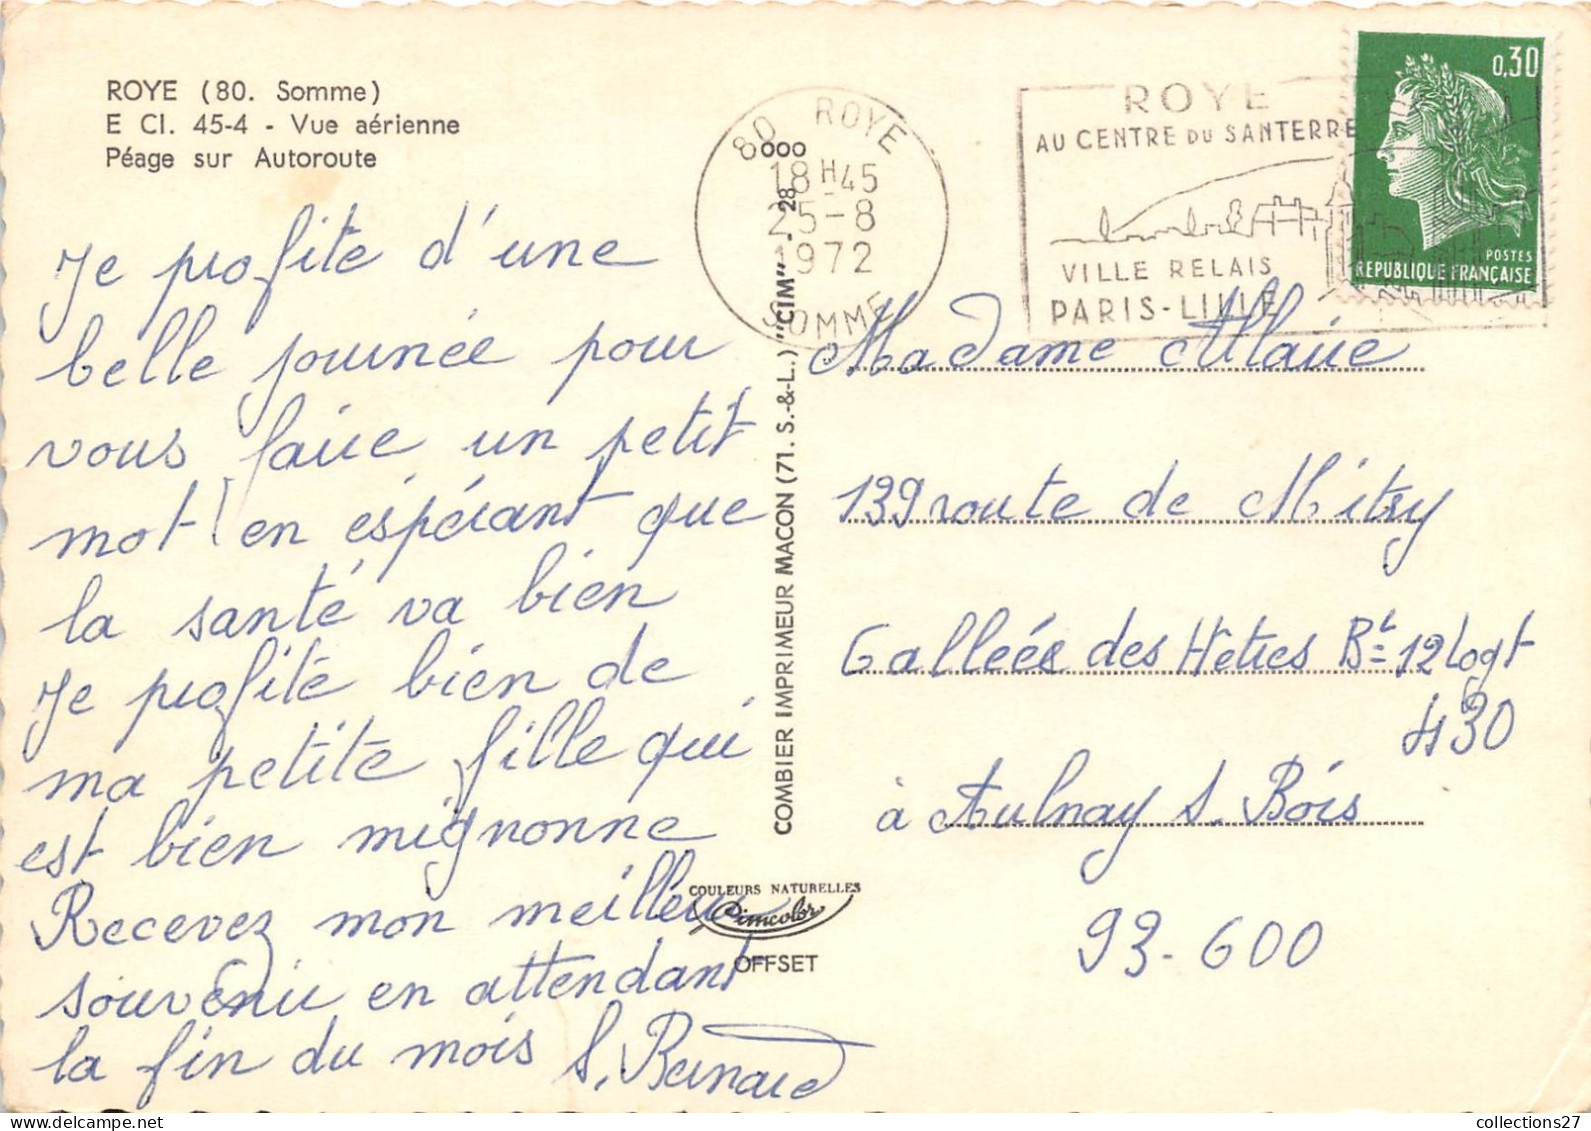 ROYE (80. Somme)
E CI. 45-4 - Vue aérienne
Péage sur Autoroute
80 ROYE
18H45
25-8
1972
SOMME
ROYE
AU CENTRE DU SANTERRE
VILLE RELAIS
PARIS-LILLE
0,30
POSTES
REPUBLIQUE FRANÇAISE
Je profite d'une
belle journée pour
vous faire un petit
mot en éspérant que
la santé va bien
Je profite bien de
ma petite fille qui
est bien mignonne
Recevez mon meilleur
souvenir en attendant
la fin du mois S. Bernard
COMBIER IMPRIMEUR MACON (71. S.-&-L.) "CIM" - 28 000
COULEURS NATURELLES
Cimcolor
OFFSET
Madame Allaire
139 route de Mitry
Gallées des Hêtres Bt 12 Logt
430
à Aulnay S. Bois
93-600
collections27